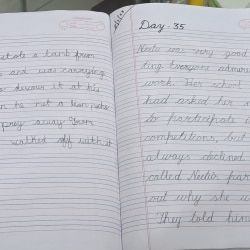 stole a lamb from
and was carrying
to devour it at his
prey away from
walked off with it
Day - 35
Neetu was very good
ting. Everyone admire
work. Her school
had asked her
to participate i
competitions, but
always declined.
called Neetu's par
out why she w
They told him